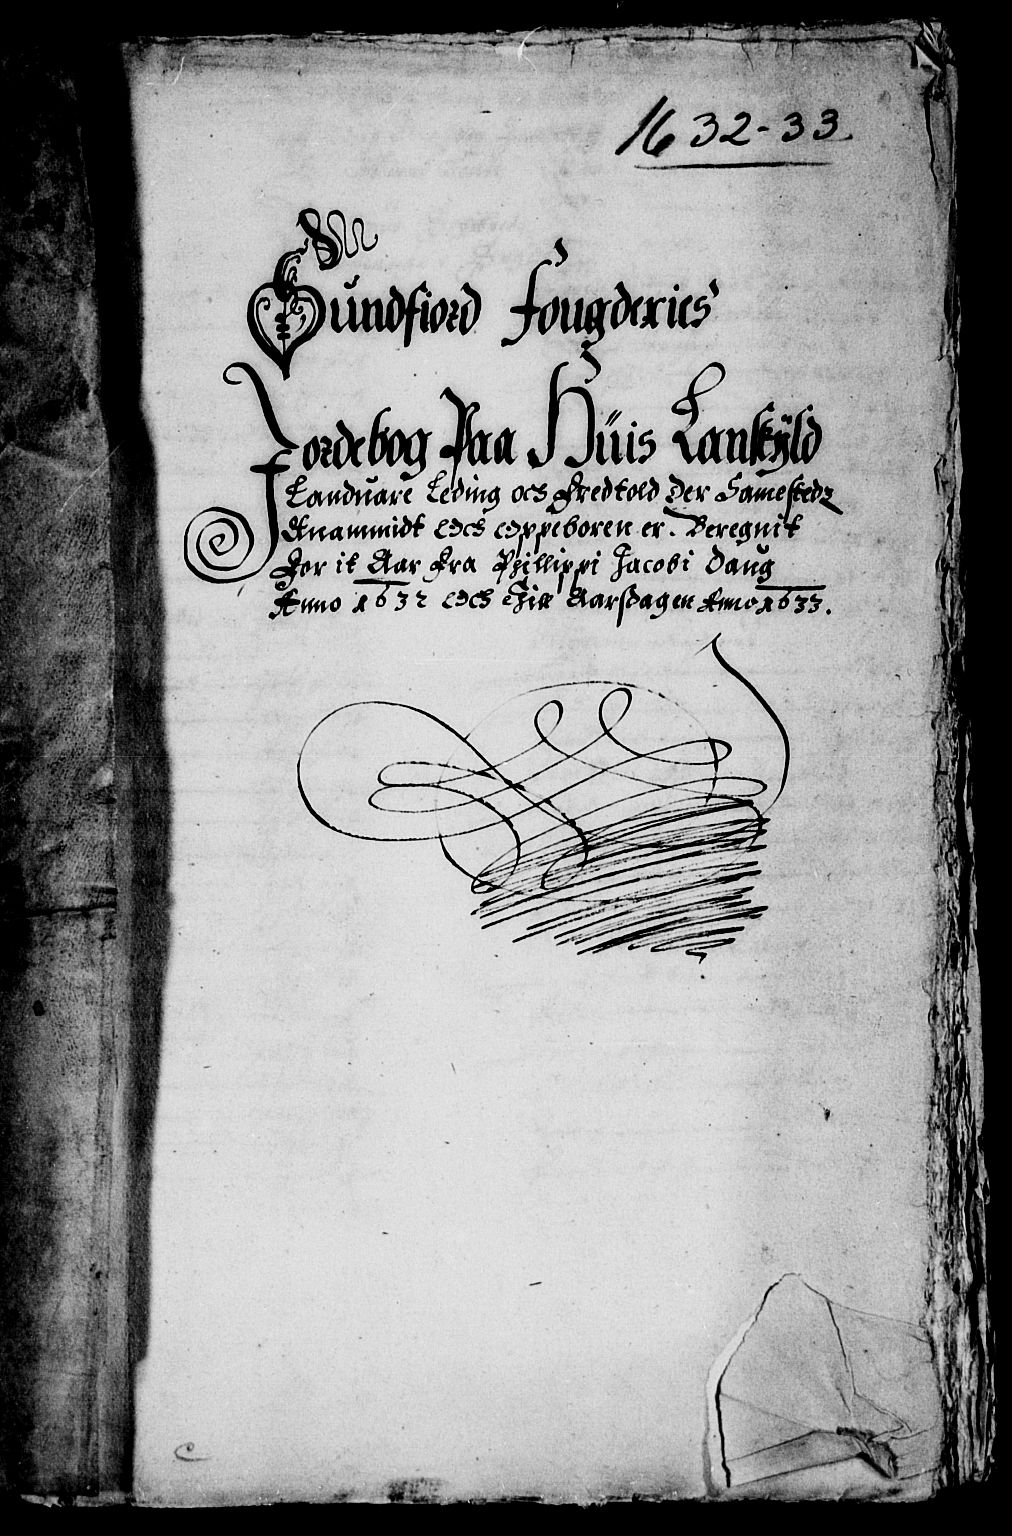 1632-33.
Sundfiord Fougderies
Jordebog Paa Hüis Lanskÿld
Landuare Leding och Fredtold der Samestedz
Anammidt och oppeboren er. Beregnit
For it Aar Fra Phillippi Jacobi Daug
Anno 1632 och Till Aarsdagen Anno 1633.